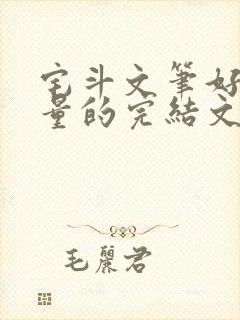 宅斗文筆好
量的完結文
毛麗君